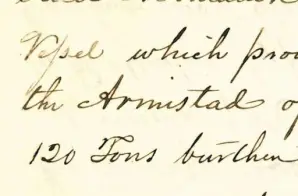 Vessel which pro
the Armistad of
120 Tons burthen